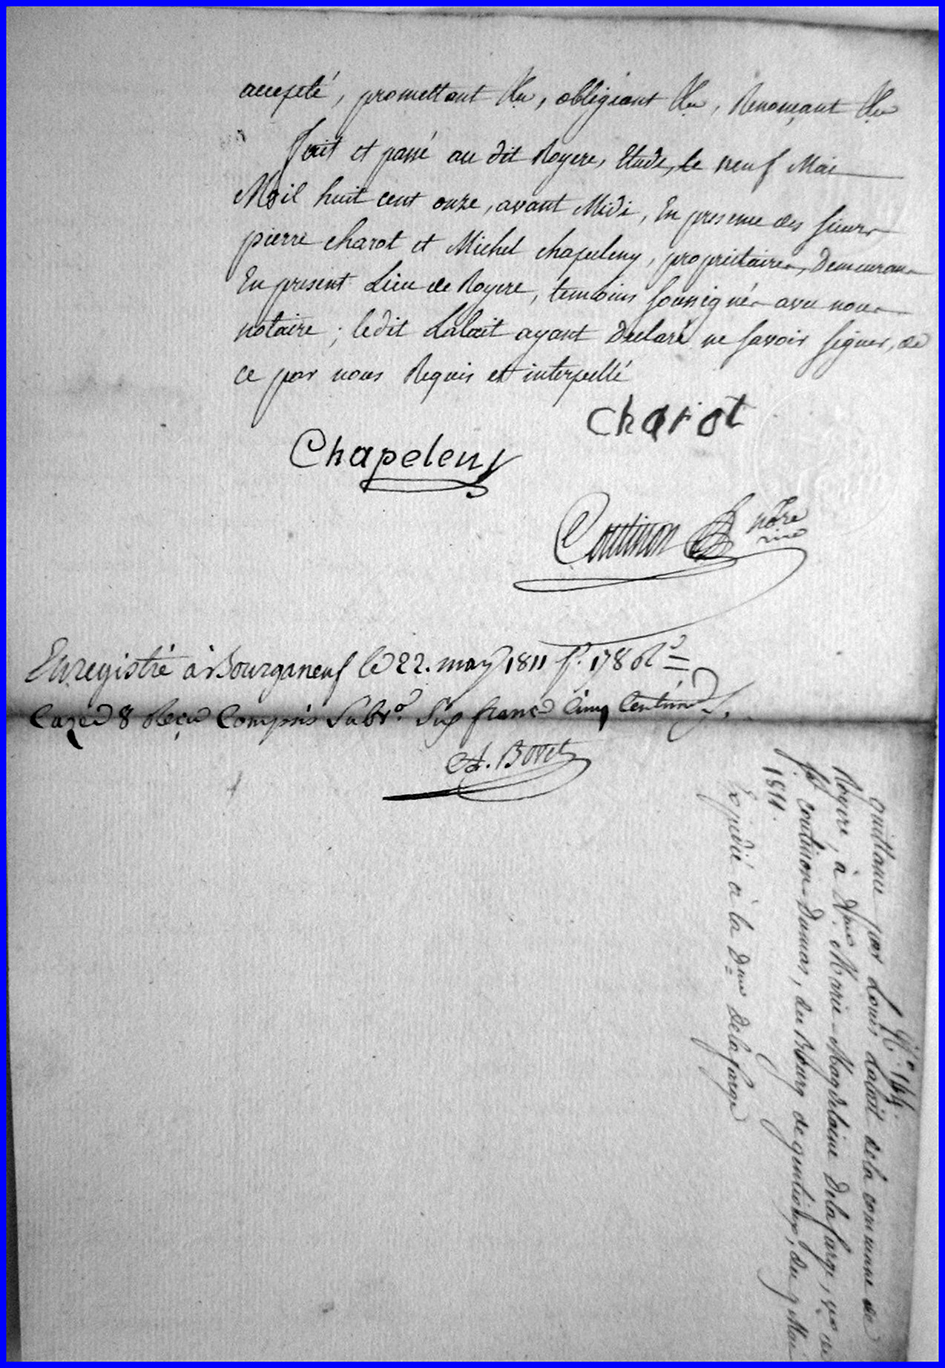 accepté, promettant &a, obligeant &a, Renonçant &a
fait et passé au dit Royere, Etude, le neuf Mai
Mil huit cent onze, avant Midi, En presence des sieurs
pierre charot et Michel chapeleny, propriétaires, Demeurans
En present Lieu de Royere, temoins soussignés avec nous
notaire; ledit Laloët ayant Declaré ne savoir signer, de
ce par nous Requis et interpellé
Charot
Chapeleny
Coutinon nore
Enregistré à Bourganeuf le 22. may 1811 f.o 178 R.o
Cazes 8 Reçu Compris Subv.on Six francs Cinq Centimes
Bovet
N.o 144.
quittance par Louis Laloët de la commune de
Royere, à D.me Marie-Magdelaine Delafarge, v.ve de
coutinon-Dumas, du Bourg de gentioux; du 9 Mai
1811.
Expédié à la D.me Delafarge